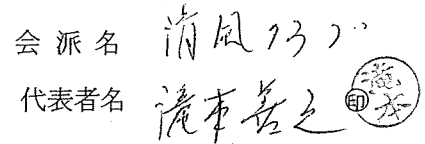 会派名 清風クラブ
代表者名 滝本善之 印